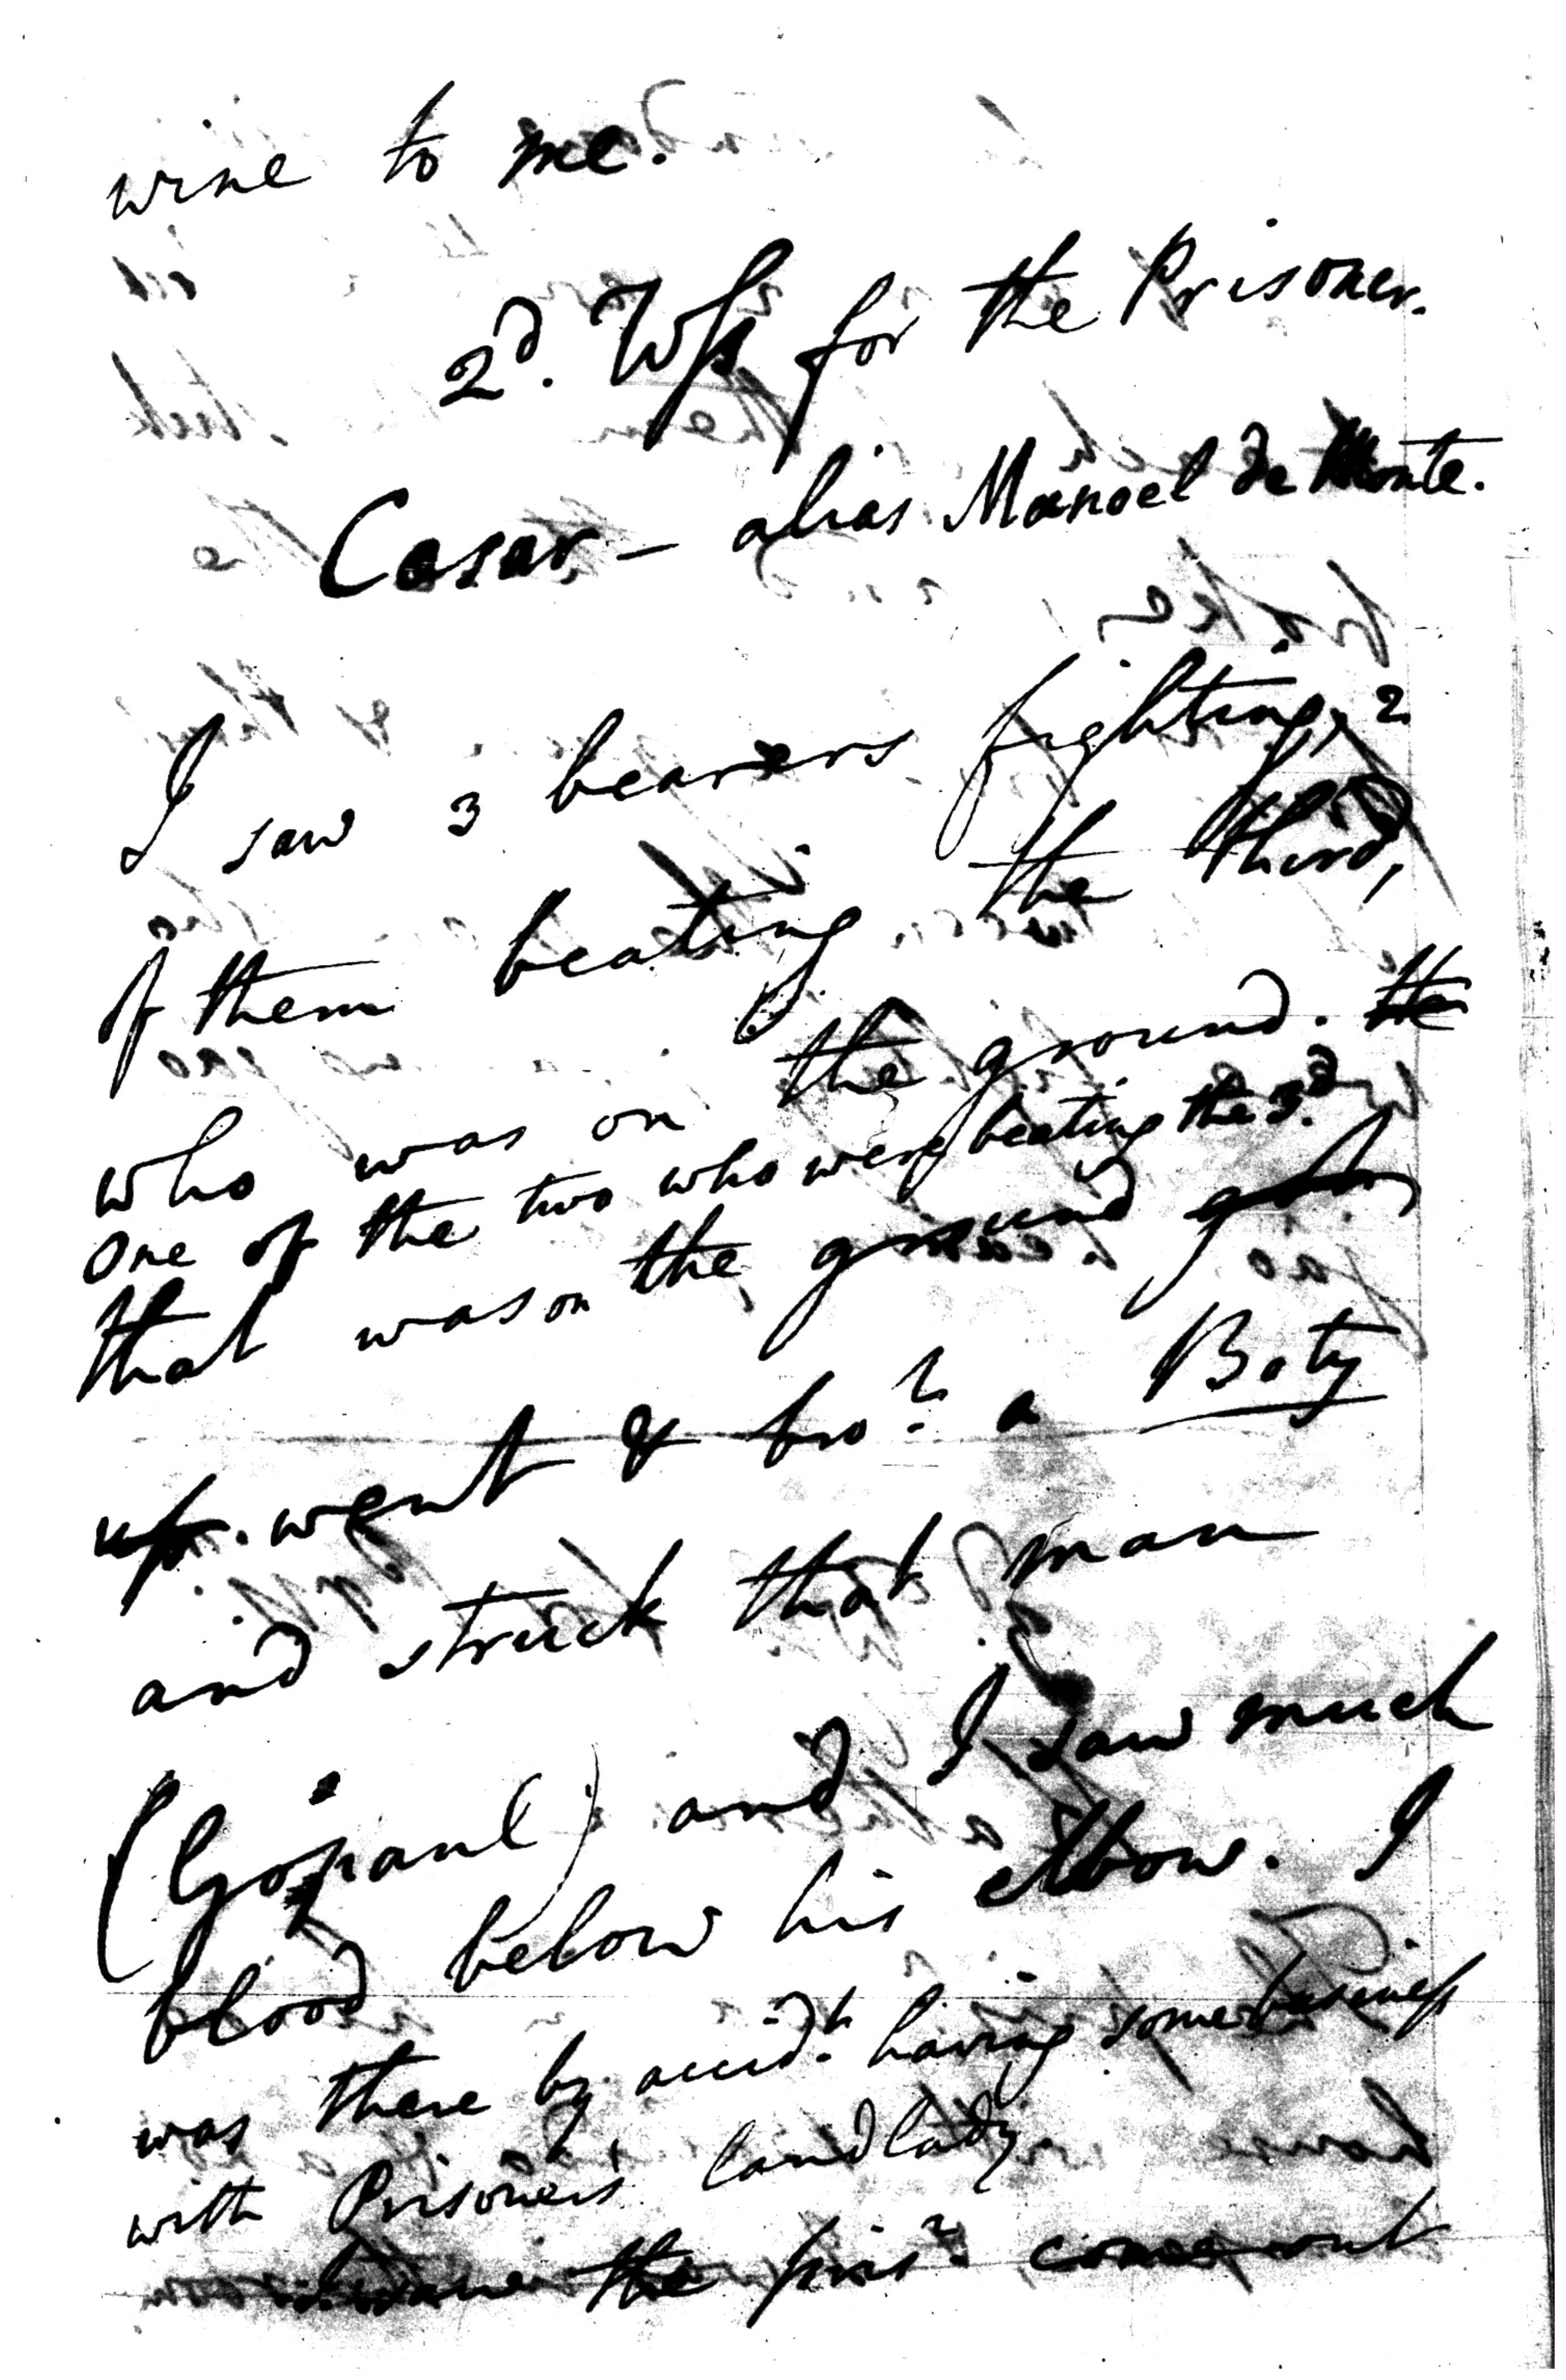 wine to me.
2d. Wss for the Prisoner.
Cesar — alias Manoel de Monte.
I saw 3 bearers fighting, 2
of them beating the third,
who was on the ground. He
one of the two who were beating the 3d.
that was on the ground got
up. went & brot. a Boty
and struck that man
(Gopaul) and I saw much
blood below his elbow. I
was there by accidt. having some business
with Prisoner's landlady
the pris.r come out